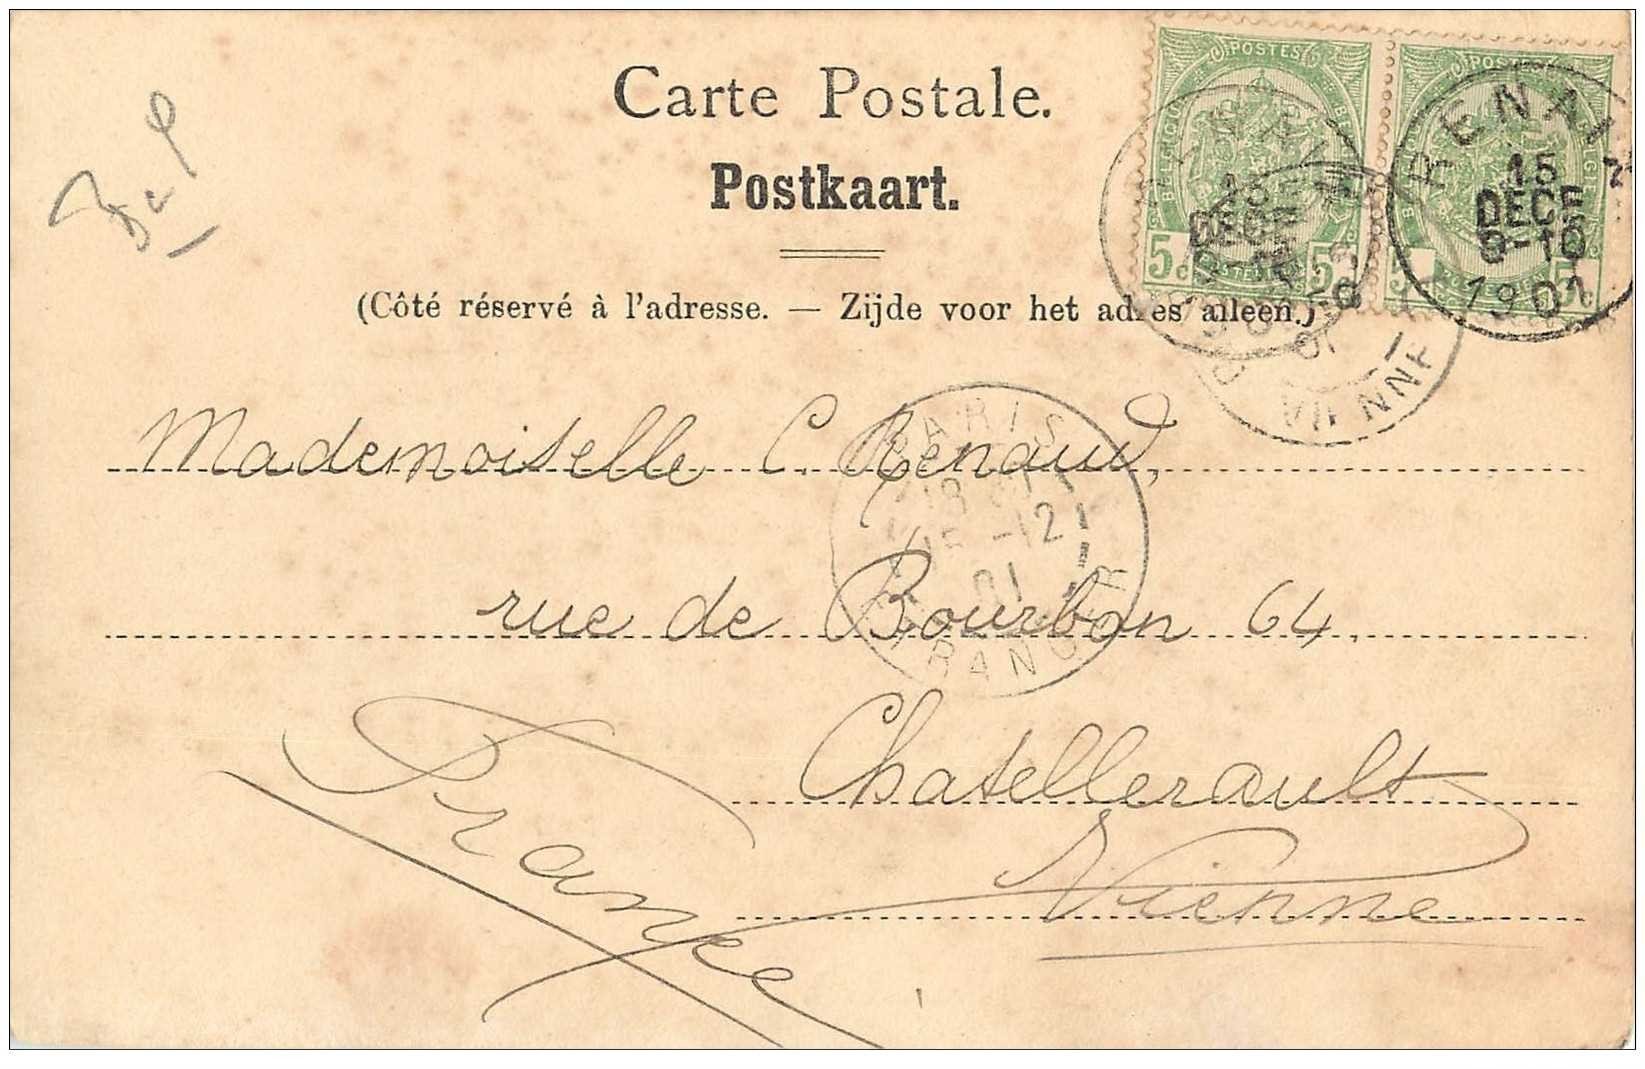 Carte Postale.
Postkaart.
(Côté réservé à l'adresse. — Zijde voor het adres alleen.)
POSTES
POSTES
BELGIQUE
5c 5c
5c
RENAIX
15
DECE
9-10
1901
VIENNE
01
PARIS
-12
01
ETRANGER
Mademoiselle C. Renaud,
rue de Bourbon 64,
Chatellerault
Vienne
France